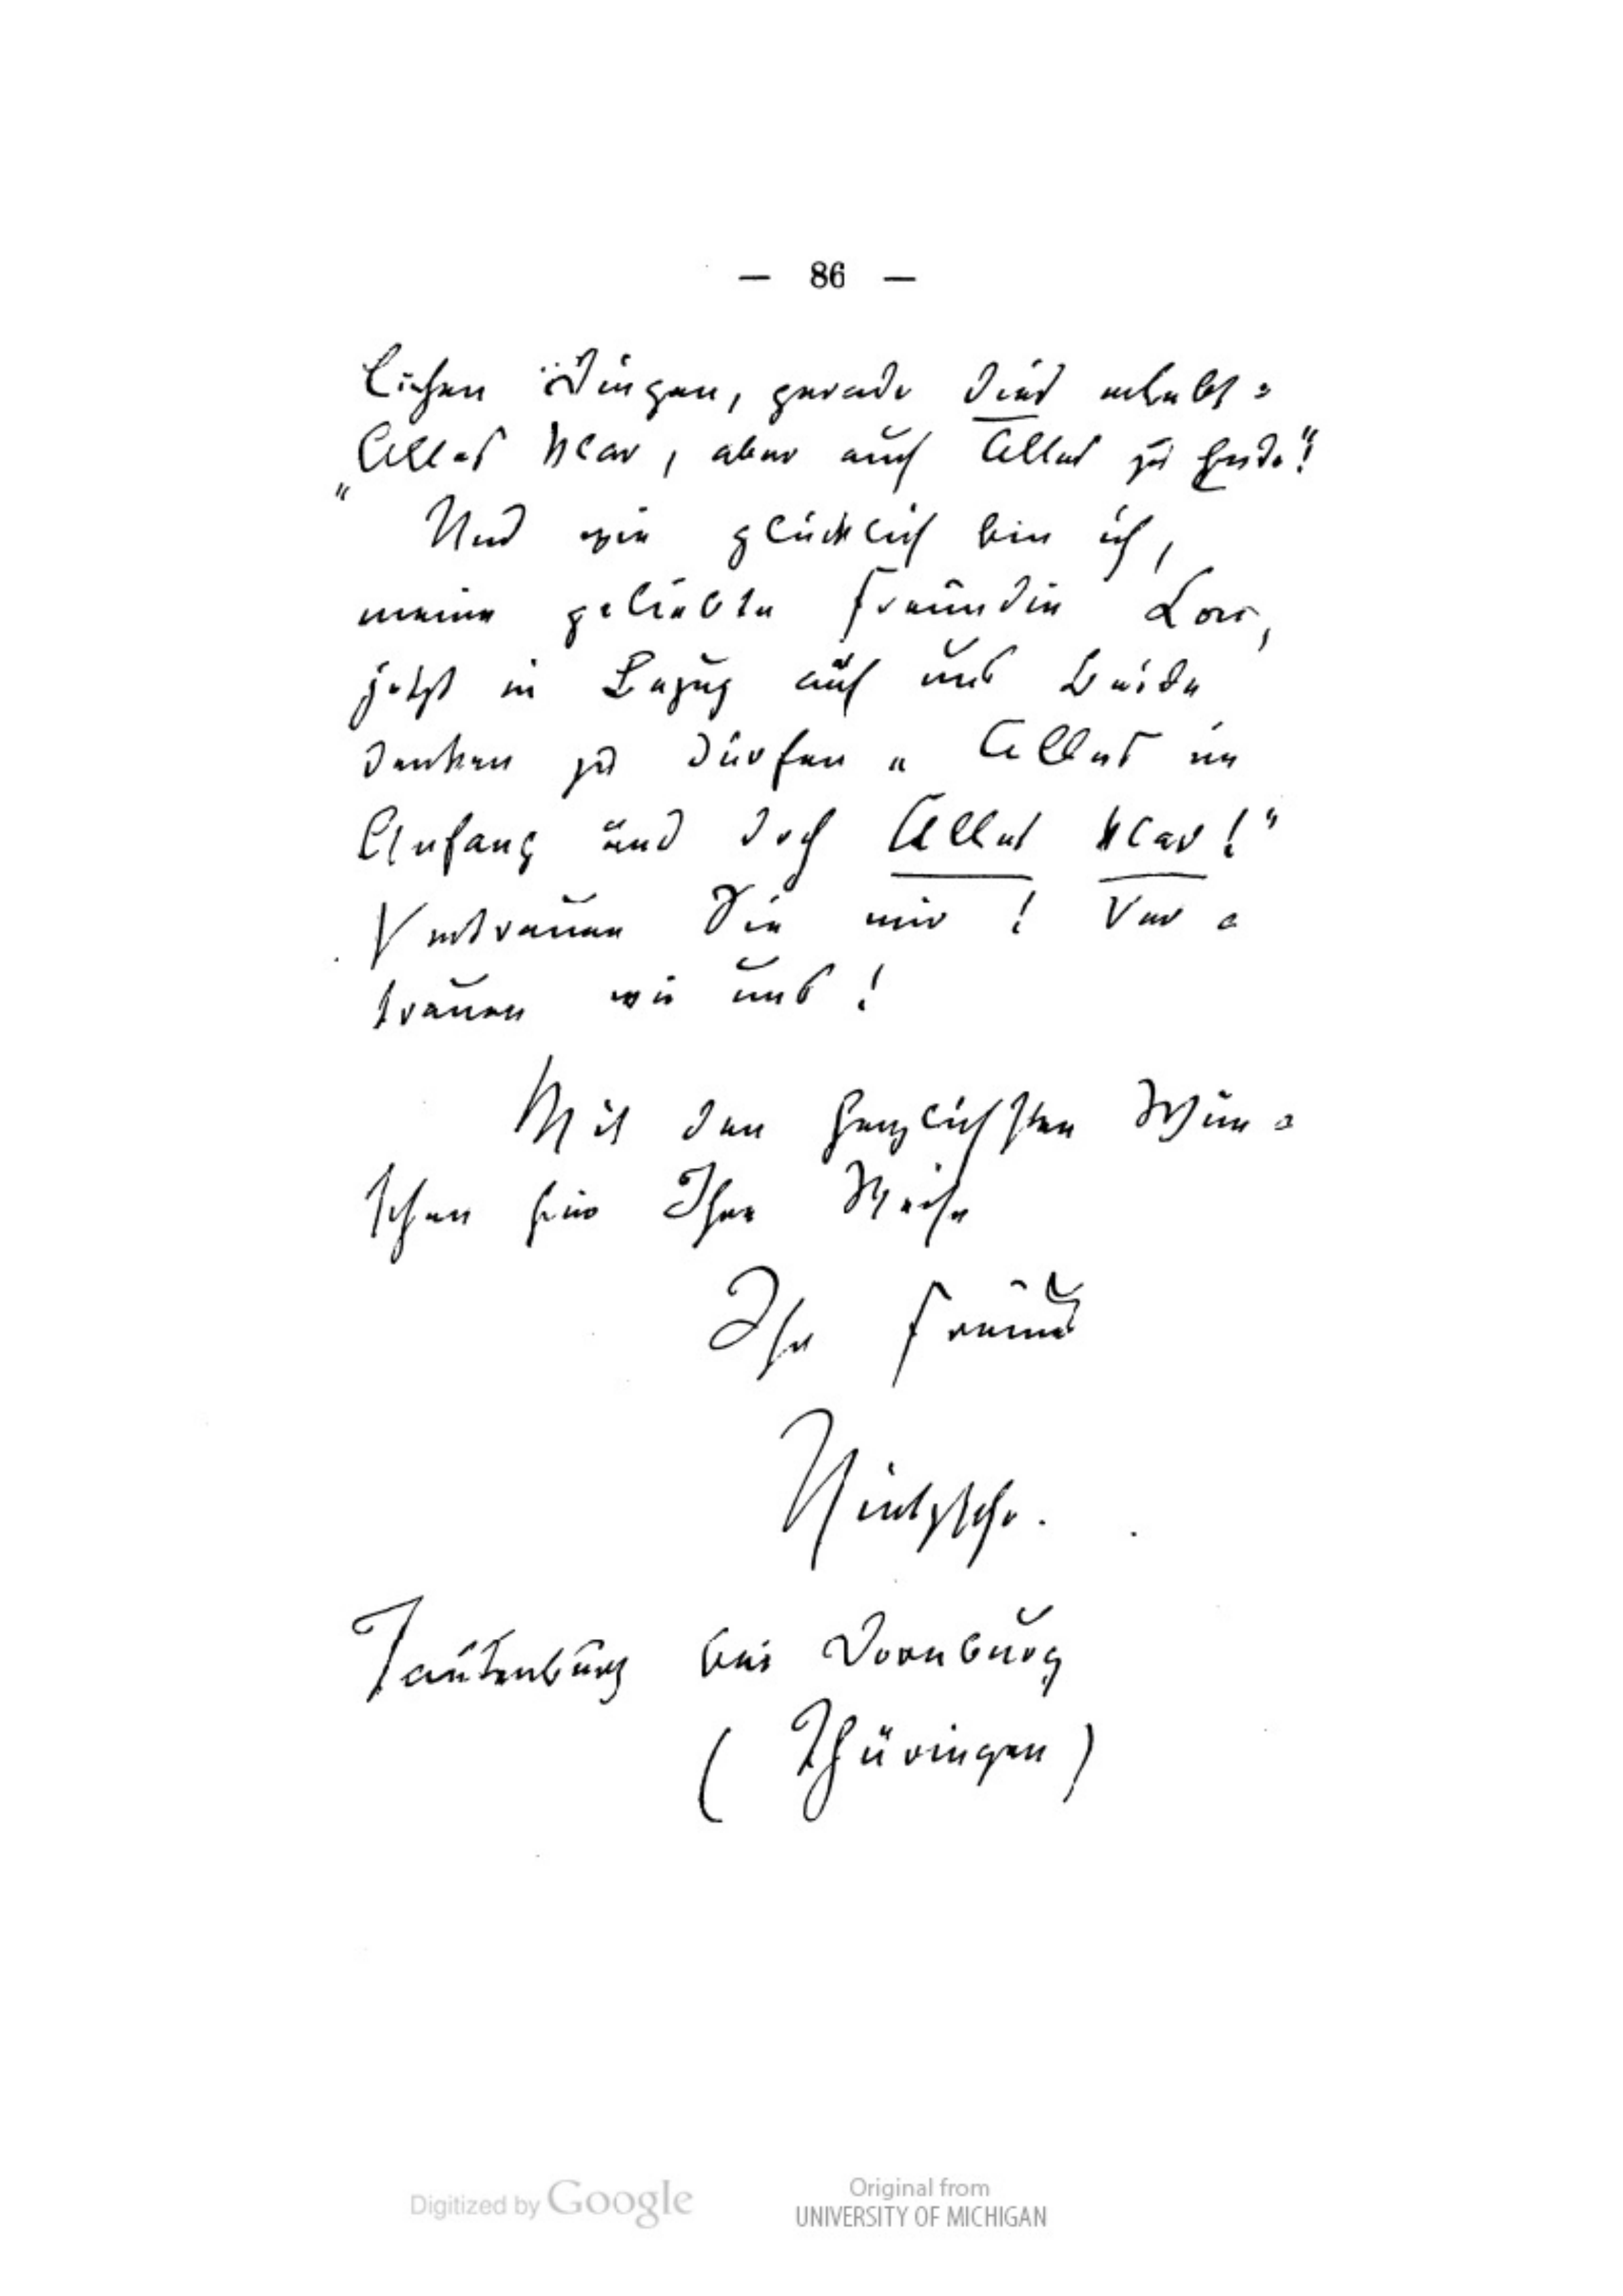 — 86 —
lichen Dingen, gerade dies erlebt =
„Alles klar, aber auch Alles zu Ende!"
Und wie glücklich bin ich,
meine geliebte Freundin Lou,
jetzt in Bezug auf uns Beide
denken zu dürfen „Alles im
Anfang und doch Alles klar!"
Vertrauen Sie mir! Ver=
trauen wir uns!
Mit den herzlichsten Wün=
schen für Ihre Reise
Ihr Freund
Nietzsche.
Tautenburg bei Dornburg
(Thüringen)
Digitized by Google
Original from
UNIVERSITY OF MICHIGAN